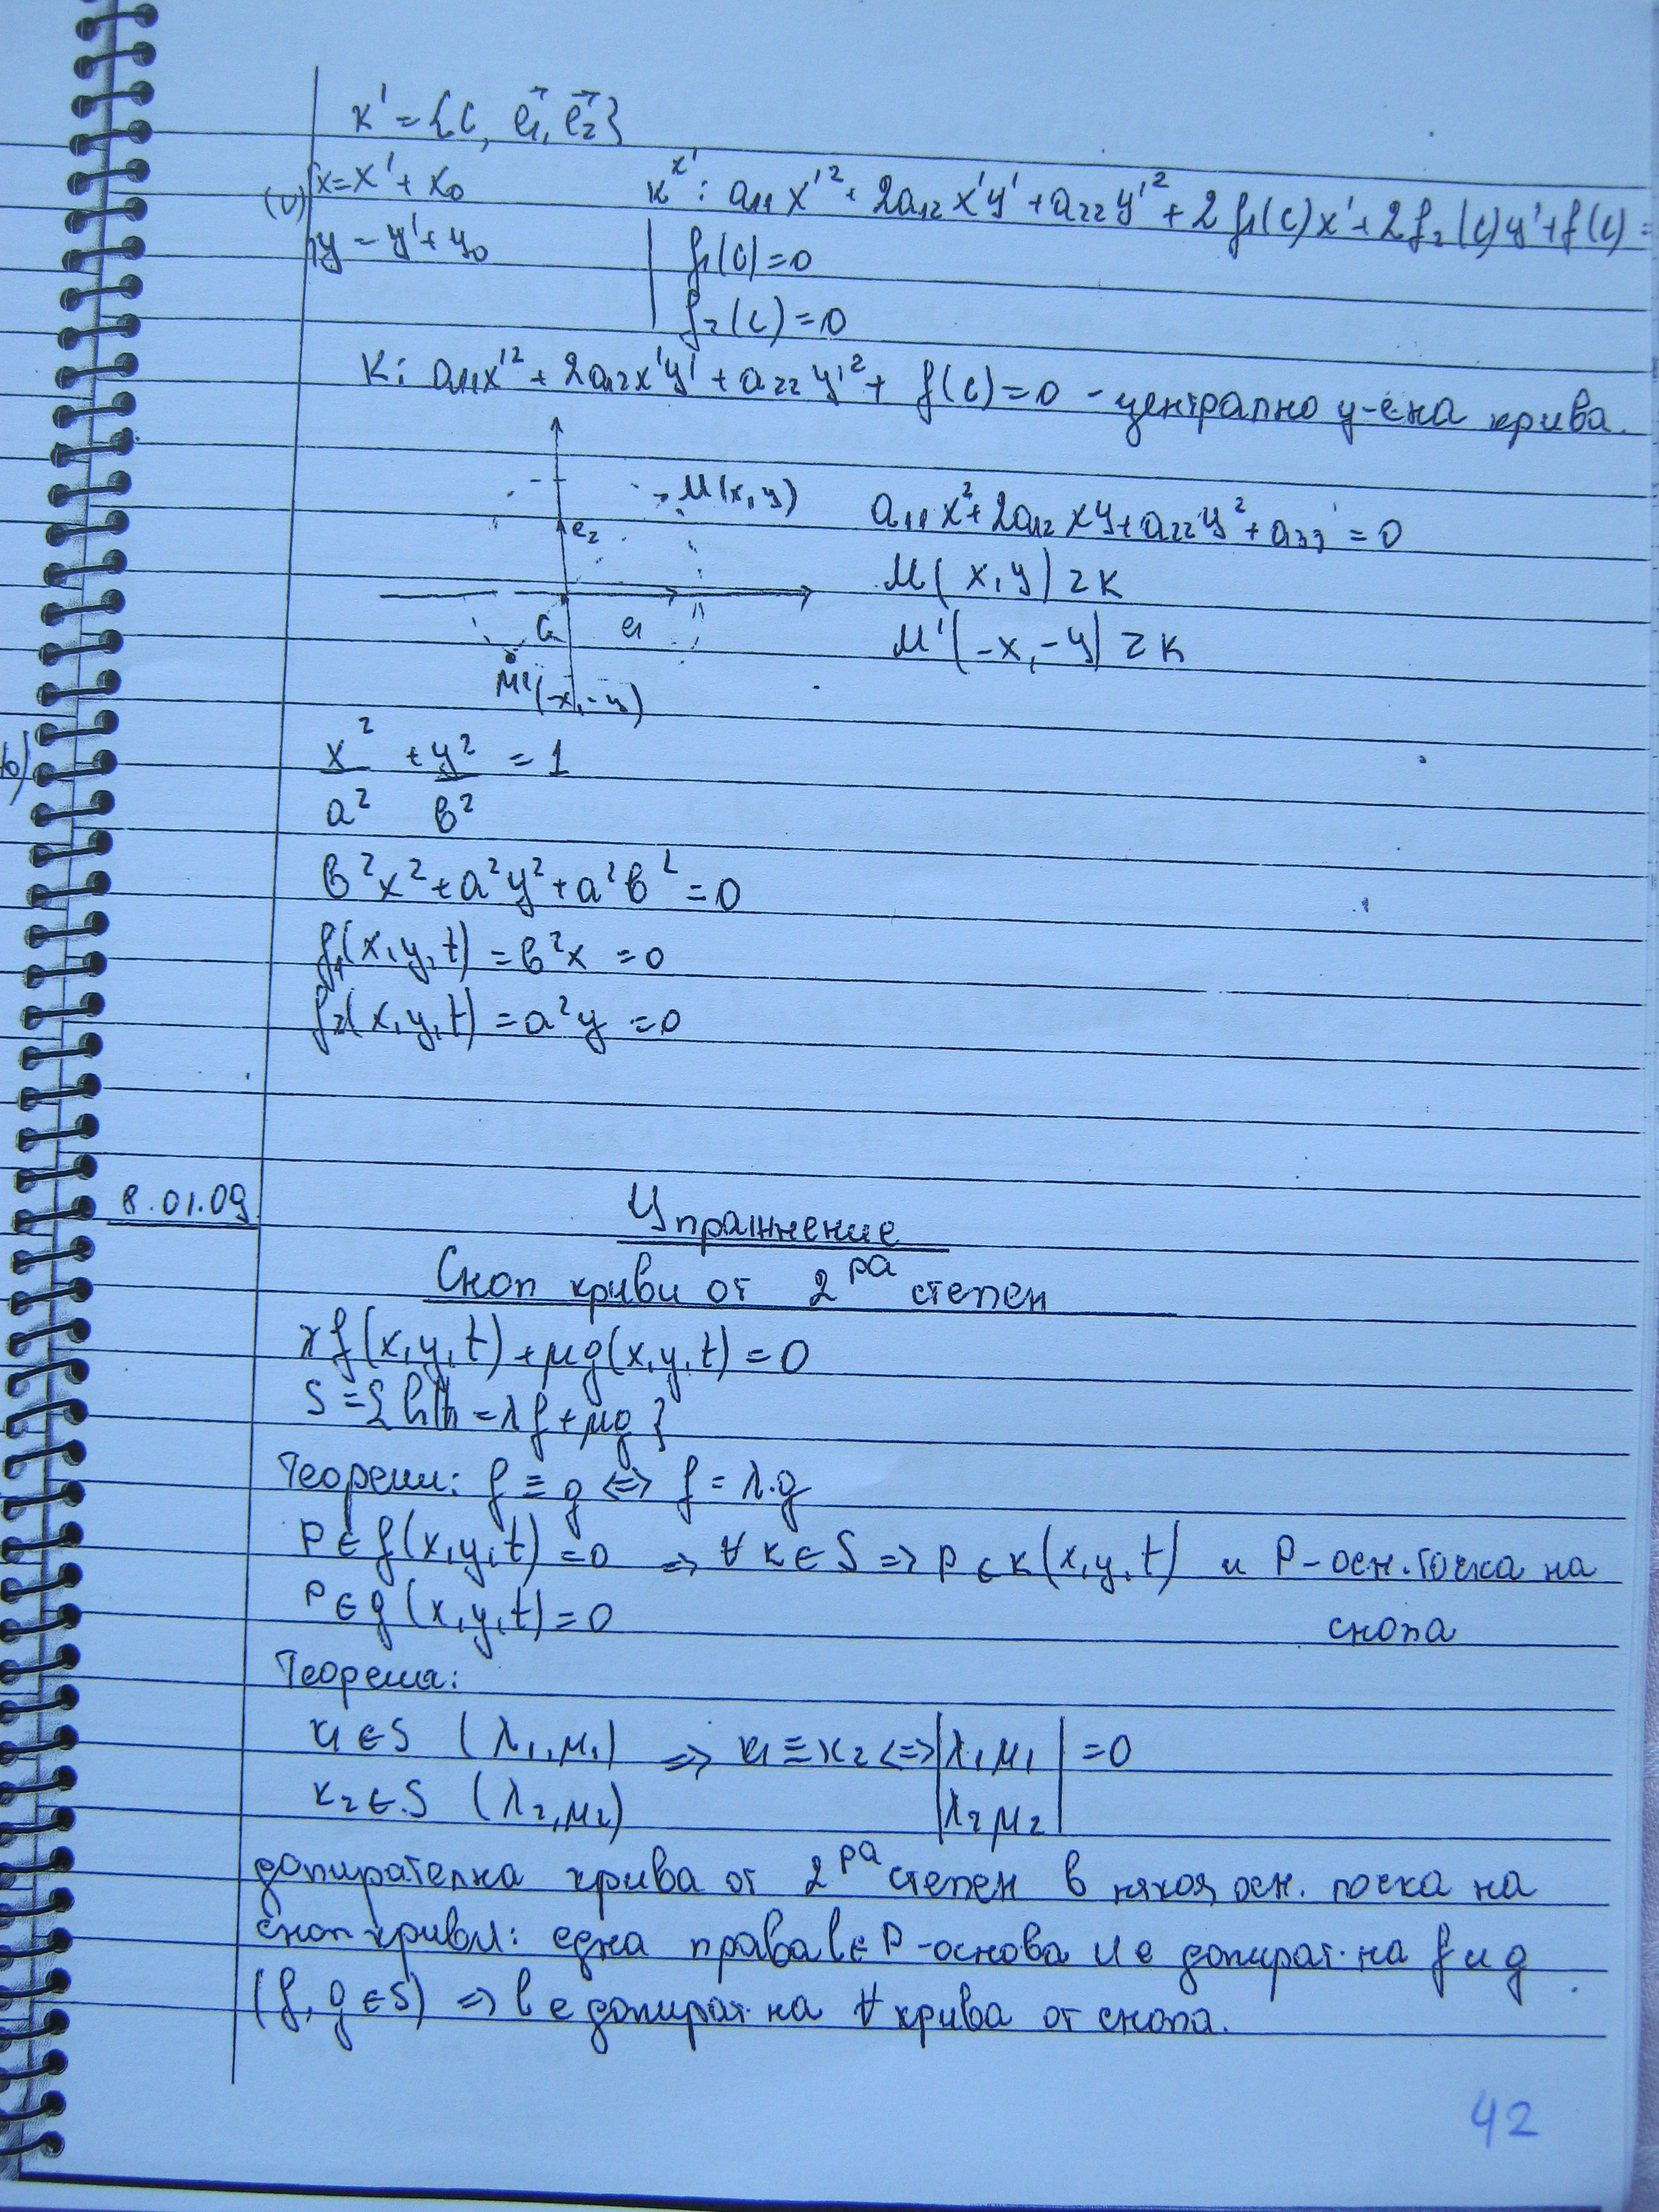 K' = {C, e₁→, e₂→}
x = x' + x₀
K^K': a₁₁x'² + 2a₁₂x'y' + a₂₂y'² + 2f₁(C)x' + 2f₂(C)y' + f(C) =
(υ)
y = y' + y₀
f₁(C) = 0
f₂(C) = 0
K: a₁₁x'² + 2a₁₂x'y' + a₂₂y'² + f(C) = 0 - централно у-ена крива.
M(x, y)
a₁₁x² + 2a₁₂xy + a₂₂y² + a₃₃ = 0
e₂
M(x, y) z K
C e₁
M'(-x, -y) z K
M'(-x, -y)
б)
x²/a² + y²/в² = 1
в²x² + a²y² + a²в² = 0
f₁(x, y, t) = в²x = 0
f₂(x, y, t) = a²y = 0
8.01.09
Упражнение
Сноп криви от 2ра степен
λf(x, y, t) + μg(x, y, t) = 0
S = {h|h = λf + μg}
Теореми: f ≡ g <=> f = λ.g
P ∈ f(x, y, t) = 0 => ∀ K ∈ S => P ∈ K(x, y, t) и P - осн. точка на
P ∈ g(x, y, t) = 0
снопа
Теорема:
K₁ ∈ S (λ₁, μ₁) => K₁ ≡ K₂ <=> |λ₁ μ₁| = 0
K₂ ∈ S (λ₂, μ₂) |λ₂ μ₂|
допирателна крива от 2ра степен в някоя осн. точка на
сноп криви: една права l ∈ P - основа и е допират. на f и g
(f, g ∈ S) => l е допират. на ∀ крива от снопа.
42